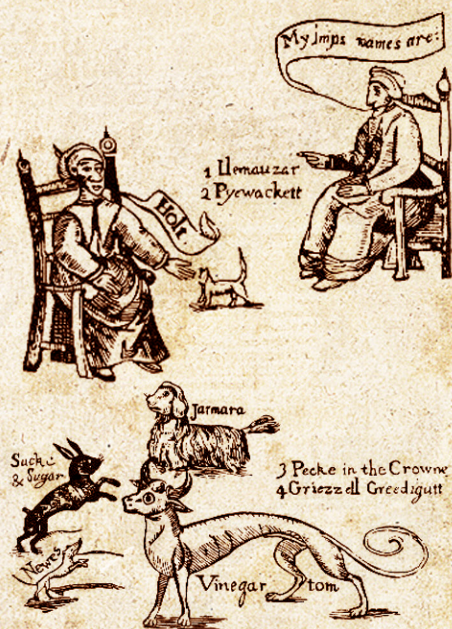 My Imps names are:
1 Ilemauzar
2 Pyewackett
Holt
Jarmara
Sacke
& Sugar
3 Pecke in the Crowne
4 Griezzell Greedigutt
Newes
Vinegar tom